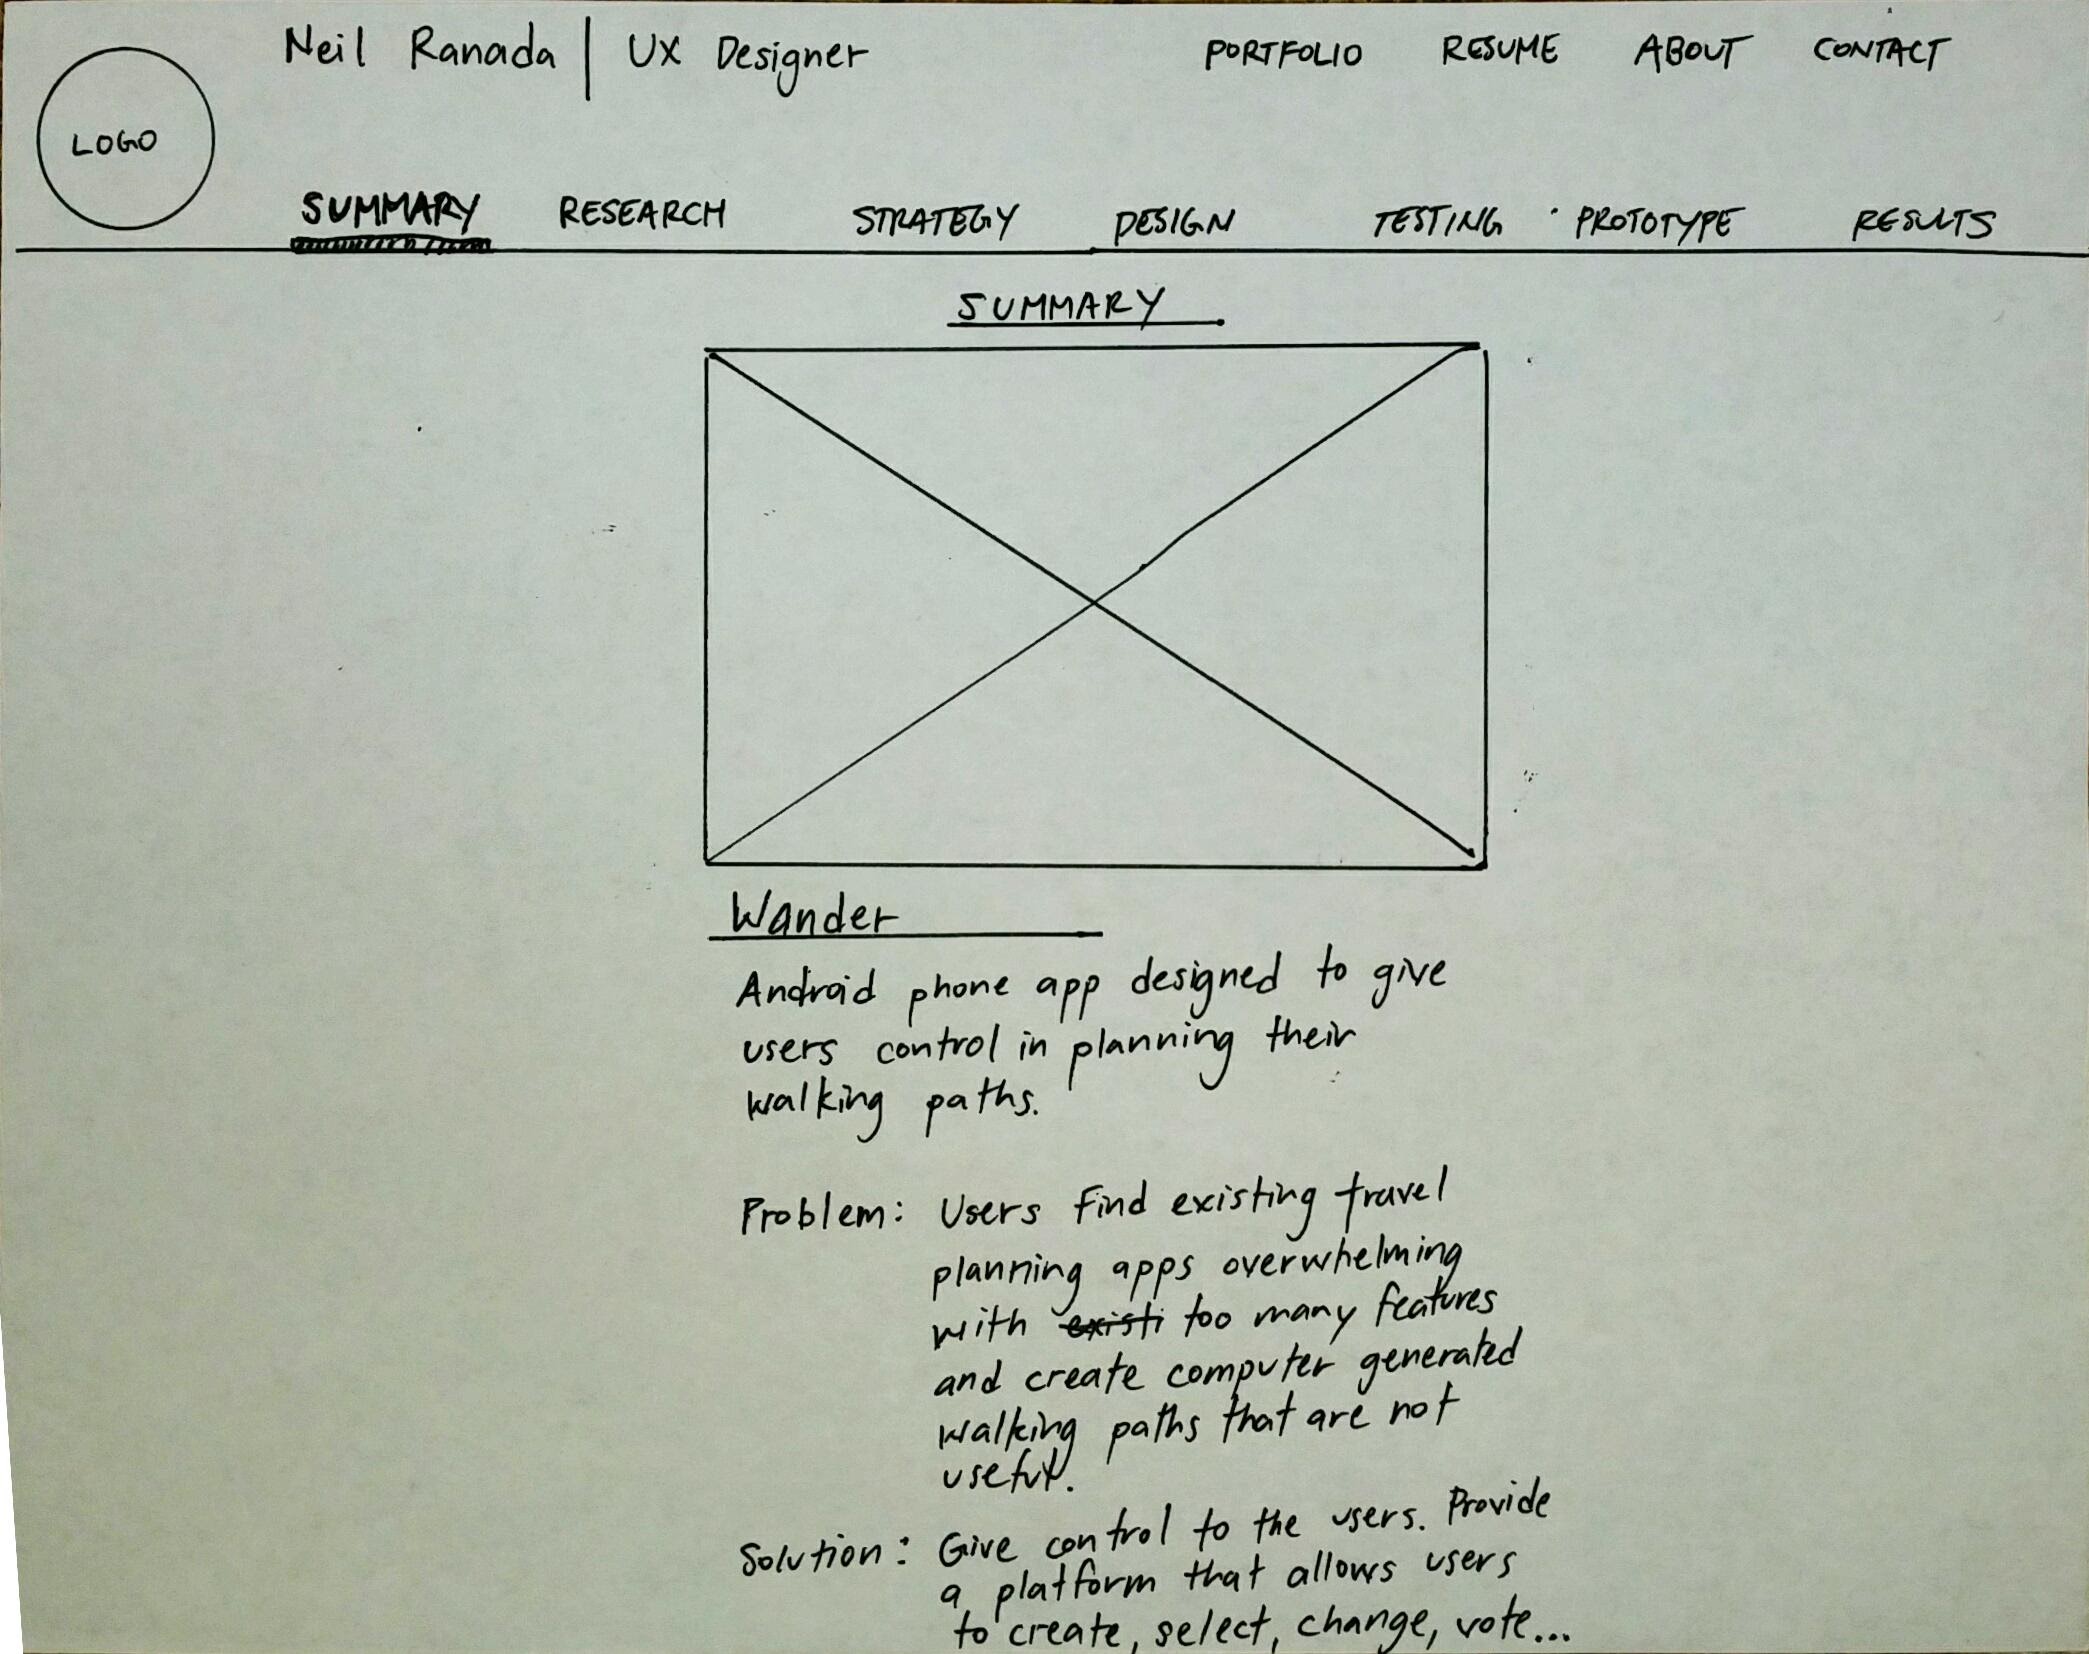 Neil Ranada | UX Designer
PORTFOLIO RESUME ABOUT CONTACT
LOGO
SUMMARY RESEARCH STRATEGY DESIGN TESTING PROTOTYPE RESULTS
SUMMARY
Wander
Android phone app designed to give
users control in planning their
walking paths.
Problem: Users find existing travel
planning apps overwhelming
with existi too many features
and create computer generated
walking paths that are not
useful.
Solution: Give control to the users. Provide
a platform that allows users
to create, select, change, vote...